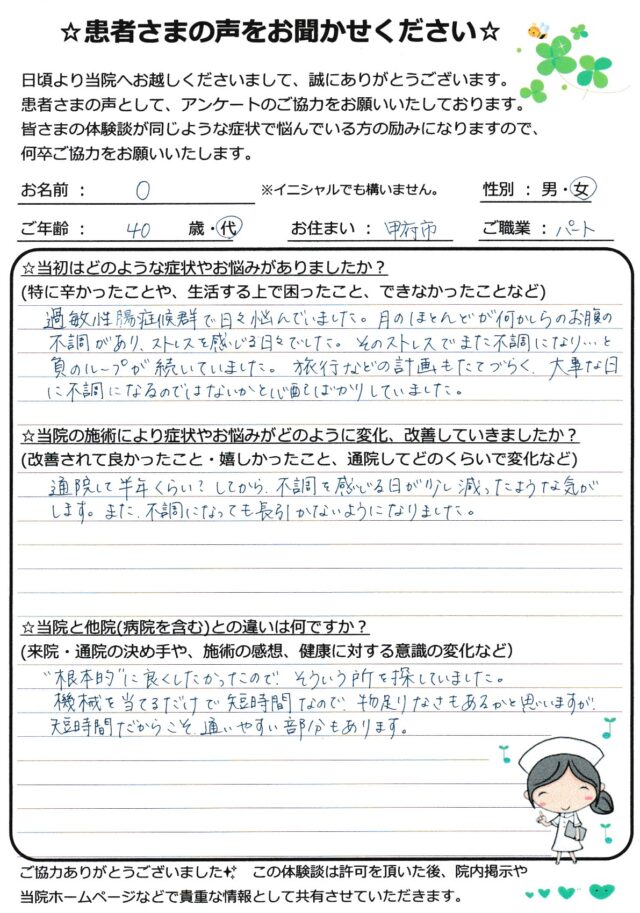 ☆患者さまの声をお聞かせください☆
日頃より当院へお越しくださいまして、誠にありがとうございます。
患者さまの声として、アンケートのご協力をお願いいたしております。
皆さまの体験談が同じような症状で悩んでいる方の励みになりますので、
何卒ご協力をお願いいたします。
お名前 : O ※イニシャルでも構いません。 性別 : 男・女
ご年齢 : 40 歳・代 お住まい : 甲府市 ご職業 : パート
☆当初はどのような症状やお悩みがありましたか?
(特に辛かったことや、生活する上で困ったこと、できなかったことなど)
過敏性腸症候群で日々悩んでいました。月のほとんどが何かしらのお腹の
不調があり、ストレスを感じる日々でした。そのストレスでまた不調になり…と
負のループが続いていました。旅行などの計画もたてづらく、大事な日
に不調になるのではないかと心配ばかりしていました。
☆当院の施術により症状やお悩みがどのように変化、改善していきましたか?
(改善されて良かったこと・嬉しかったこと、通院してどのくらいで変化など)
通院して半年くらい?してから、不調を感じる日が少し減ったような気が
します。また、不調になっても長引かないようになりました。
☆当院と他院(病院を含む)との違いは何ですか?
(来院・通院の決め手や、施術の感想、健康に対する意識の変化など)
"根本的"に良くしたかったので、そういう所を探していました。
機械を当てるだけで短時間なので、物足りなさもあるかと思いますが、
短時間だからこそ、通いやすい部分もあります。
ご協力ありがとうございました この体験談は許可を頂いた後、院内掲示や
当院ホームページなどで貴重な情報として共有させていただきます。